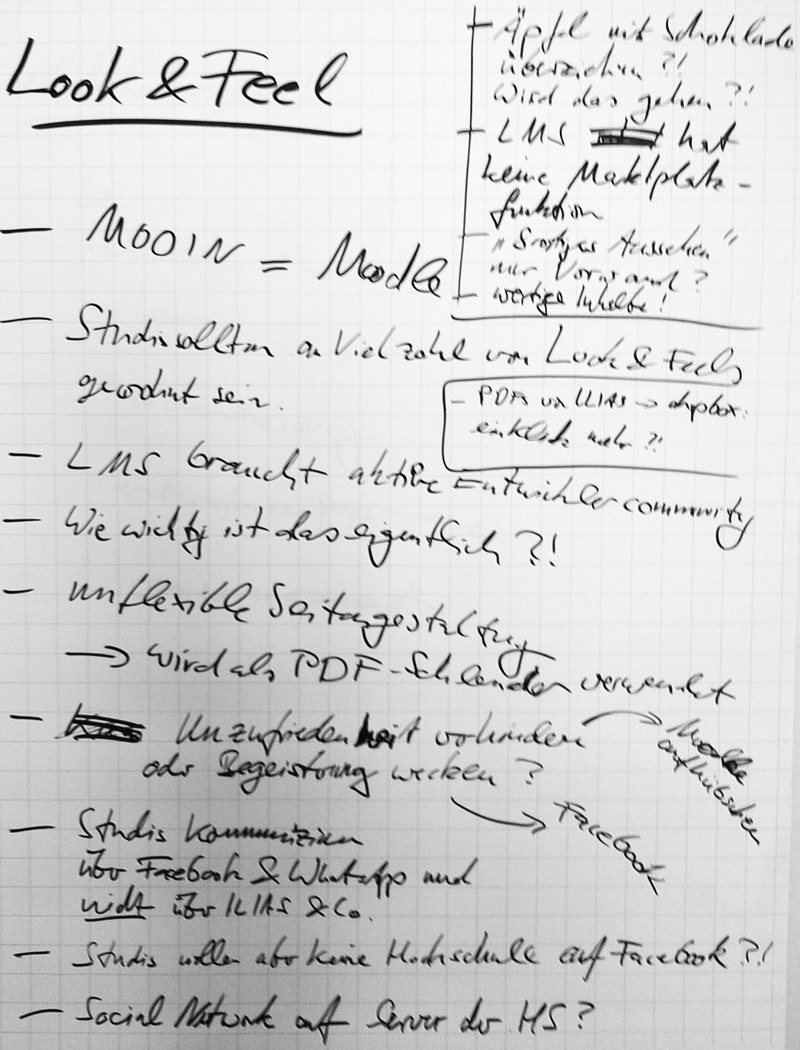 Look & Feel
– MOOIN = Moodle
– Studis sollten an Vielzahl von Look & Feels
gewöhnt sein.
– LMS braucht aktive Entwicklercommunity
– Wie wichtig ist das eigentlich ?!
– unflexible Seitengestaltung
→ wird als PDF-Schleuder verwendet
– Unzufriedenheit verhindern
oder Begeisterung wecken ?
→ Moodle
aufhübschen
→ Facebook
– Studis kommunizieren
über Facebook & WhatsApp und
nicht über ILIAS & Co.
– Studis wollen aber keine Hochschule auf Facebook ?!
– Social Network auf Server der HS ?
– Äpfel mit Schokolade
überziehen ?!
Wird das gehen ?!
– LMS hat
keine Marktplatz-
funktion
– Aussehen"
nur Vorwand ?
– wertige Inhalte !
– PDFs von ILIAS → dropbox:
ein Klick mehr ?!